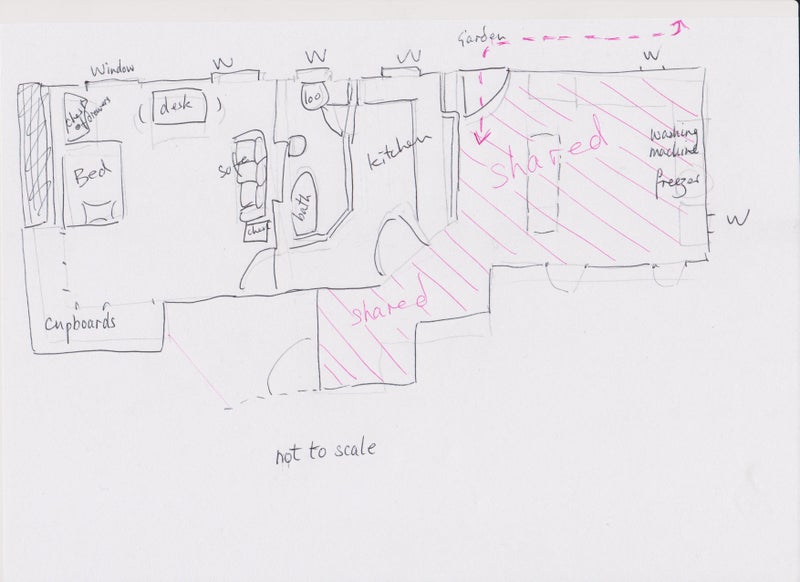 Garden
Window
W
W
W
W
chest
of drawers
desk
loo
shared
washing
machine
freezer
Bed
Sofa
kitchen
bath
chest
W
shared
cupboards
not to scale